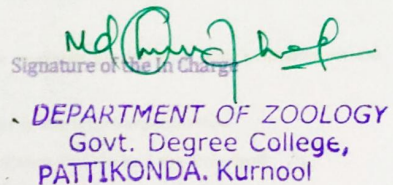 Signature of the In Charge
DEPARTMENT OF ZOOLOGY
Govt. Degree College,
PATTIKONDA. Kurnool